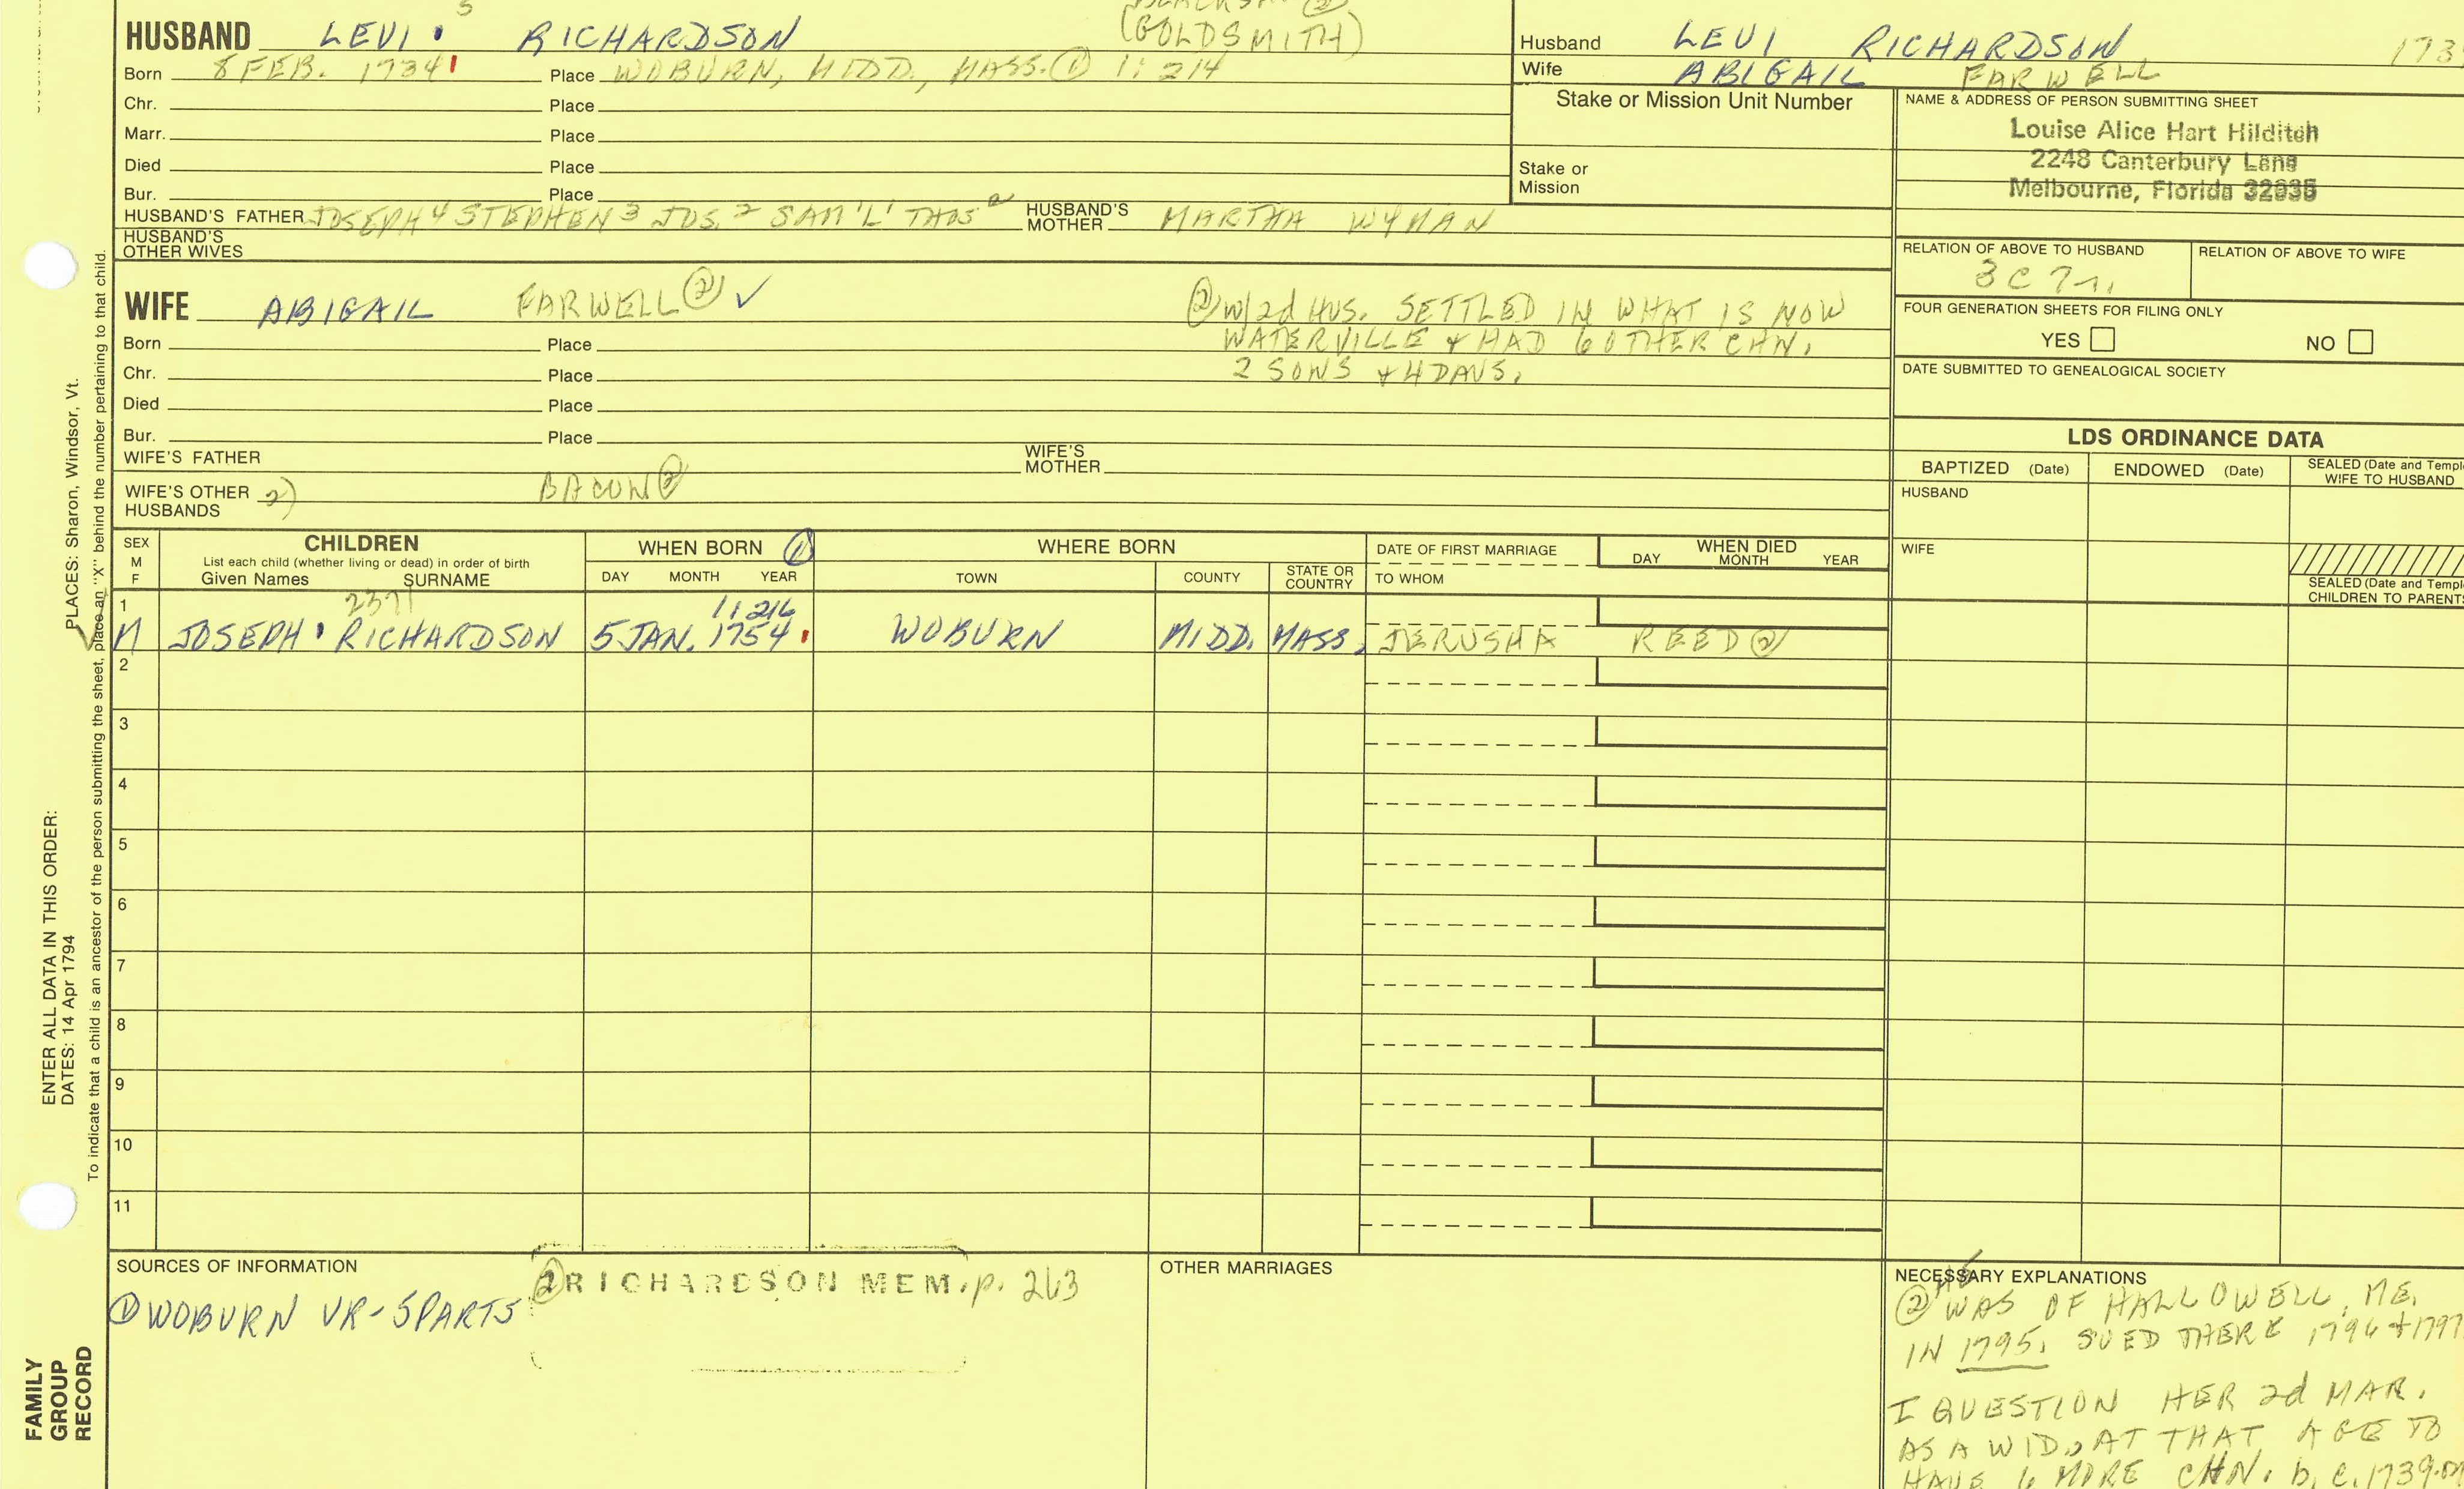 HUSBAND LEVI 5 RICHARDSON (GOLDSMITH)
Born 8 FEB. 1734 Place WOBURN, MIDD., MASS. ① 1:214
Chr. Place
Marr. Place
Died Place
Bur. Place
HUSBAND'S FATHER JOSEPH 4 STEPHEN 3 JOS. 2 SAM'L' THOS a HUSBAND'S MOTHER MARTHA WYMAN
HUSBAND'S OTHER WIVES
WIFE ABIGAIL FARWELL ② ✓
② W/2d HUS. SETTLED IN WHAT IS NOW
WATERVILLE & HAD 6 OTHER CHN.
2 SONS & 4 DAUS.
Born Place
Chr. Place
Died Place
Bur. Place
WIFE'S FATHER WIFE'S MOTHER
WIFE'S OTHER HUSBANDS 2) BACON ②
Husband LEVI RICHARDSON 173
Wife ABIGAIL FARWELL
Stake or Mission Unit Number
Stake or Mission
NAME & ADDRESS OF PERSON SUBMITTING SHEET
Louise Alice Hart Hilditch
2248 Canterbury Lane
Melbourne, Florida 32935
RELATION OF ABOVE TO HUSBAND RELATION OF ABOVE TO WIFE
3C7r.
FOUR GENERATION SHEETS FOR FILING ONLY
YES NO
DATE SUBMITTED TO GENEALOGICAL SOCIETY
LDS ORDINANCE DATA
BAPTIZED (Date) ENDOWED (Date) SEALED (Date and Templ
WIFE TO HUSBAND
HUSBAND
WIFE
SEALED (Date and Templ
CHILDREN TO PARENTS
SEX
M
F
CHILDREN
List each child (whether living or dead) in order of birth
Given Names SURNAME
WHEN BORN ①
DAY MONTH YEAR
WHERE BORN
TOWN COUNTY STATE OR COUNTRY
DATE OF FIRST MARRIAGE
TO WHOM
WHEN DIED
DAY MONTH YEAR
1 2371 1:216
M JOSEPH RICHARDSON 5 JAN. 1754 WOBURN MIDD. MASS. JERUSHA REED ②
2
3
4
5
6
7
8
9
10
11
SOURCES OF INFORMATION
① WOBURN VR-5PARTS
② RICHARDSON MEM. p. 263
OTHER MARRIAGES
NECESSARY EXPLANATIONS
② WAS OF HALLOWELL, ME.
IN 1795. SUED THERE 1796 & 1797
I QUESTION HER 2d MAR.
AS A WID. AT THAT AGE TO
HAVE 6 MORE CHN. b. c. 1739
PLACES: Sharon, Windsor, Vt.
To indicate that a child is an ancestor of the person submitting the sheet, place an "X" behind the number pertaining to that child.
ENTER ALL DATA IN THIS ORDER:
DATES: 14 Apr 1794
FAMILY
GROUP
RECORD